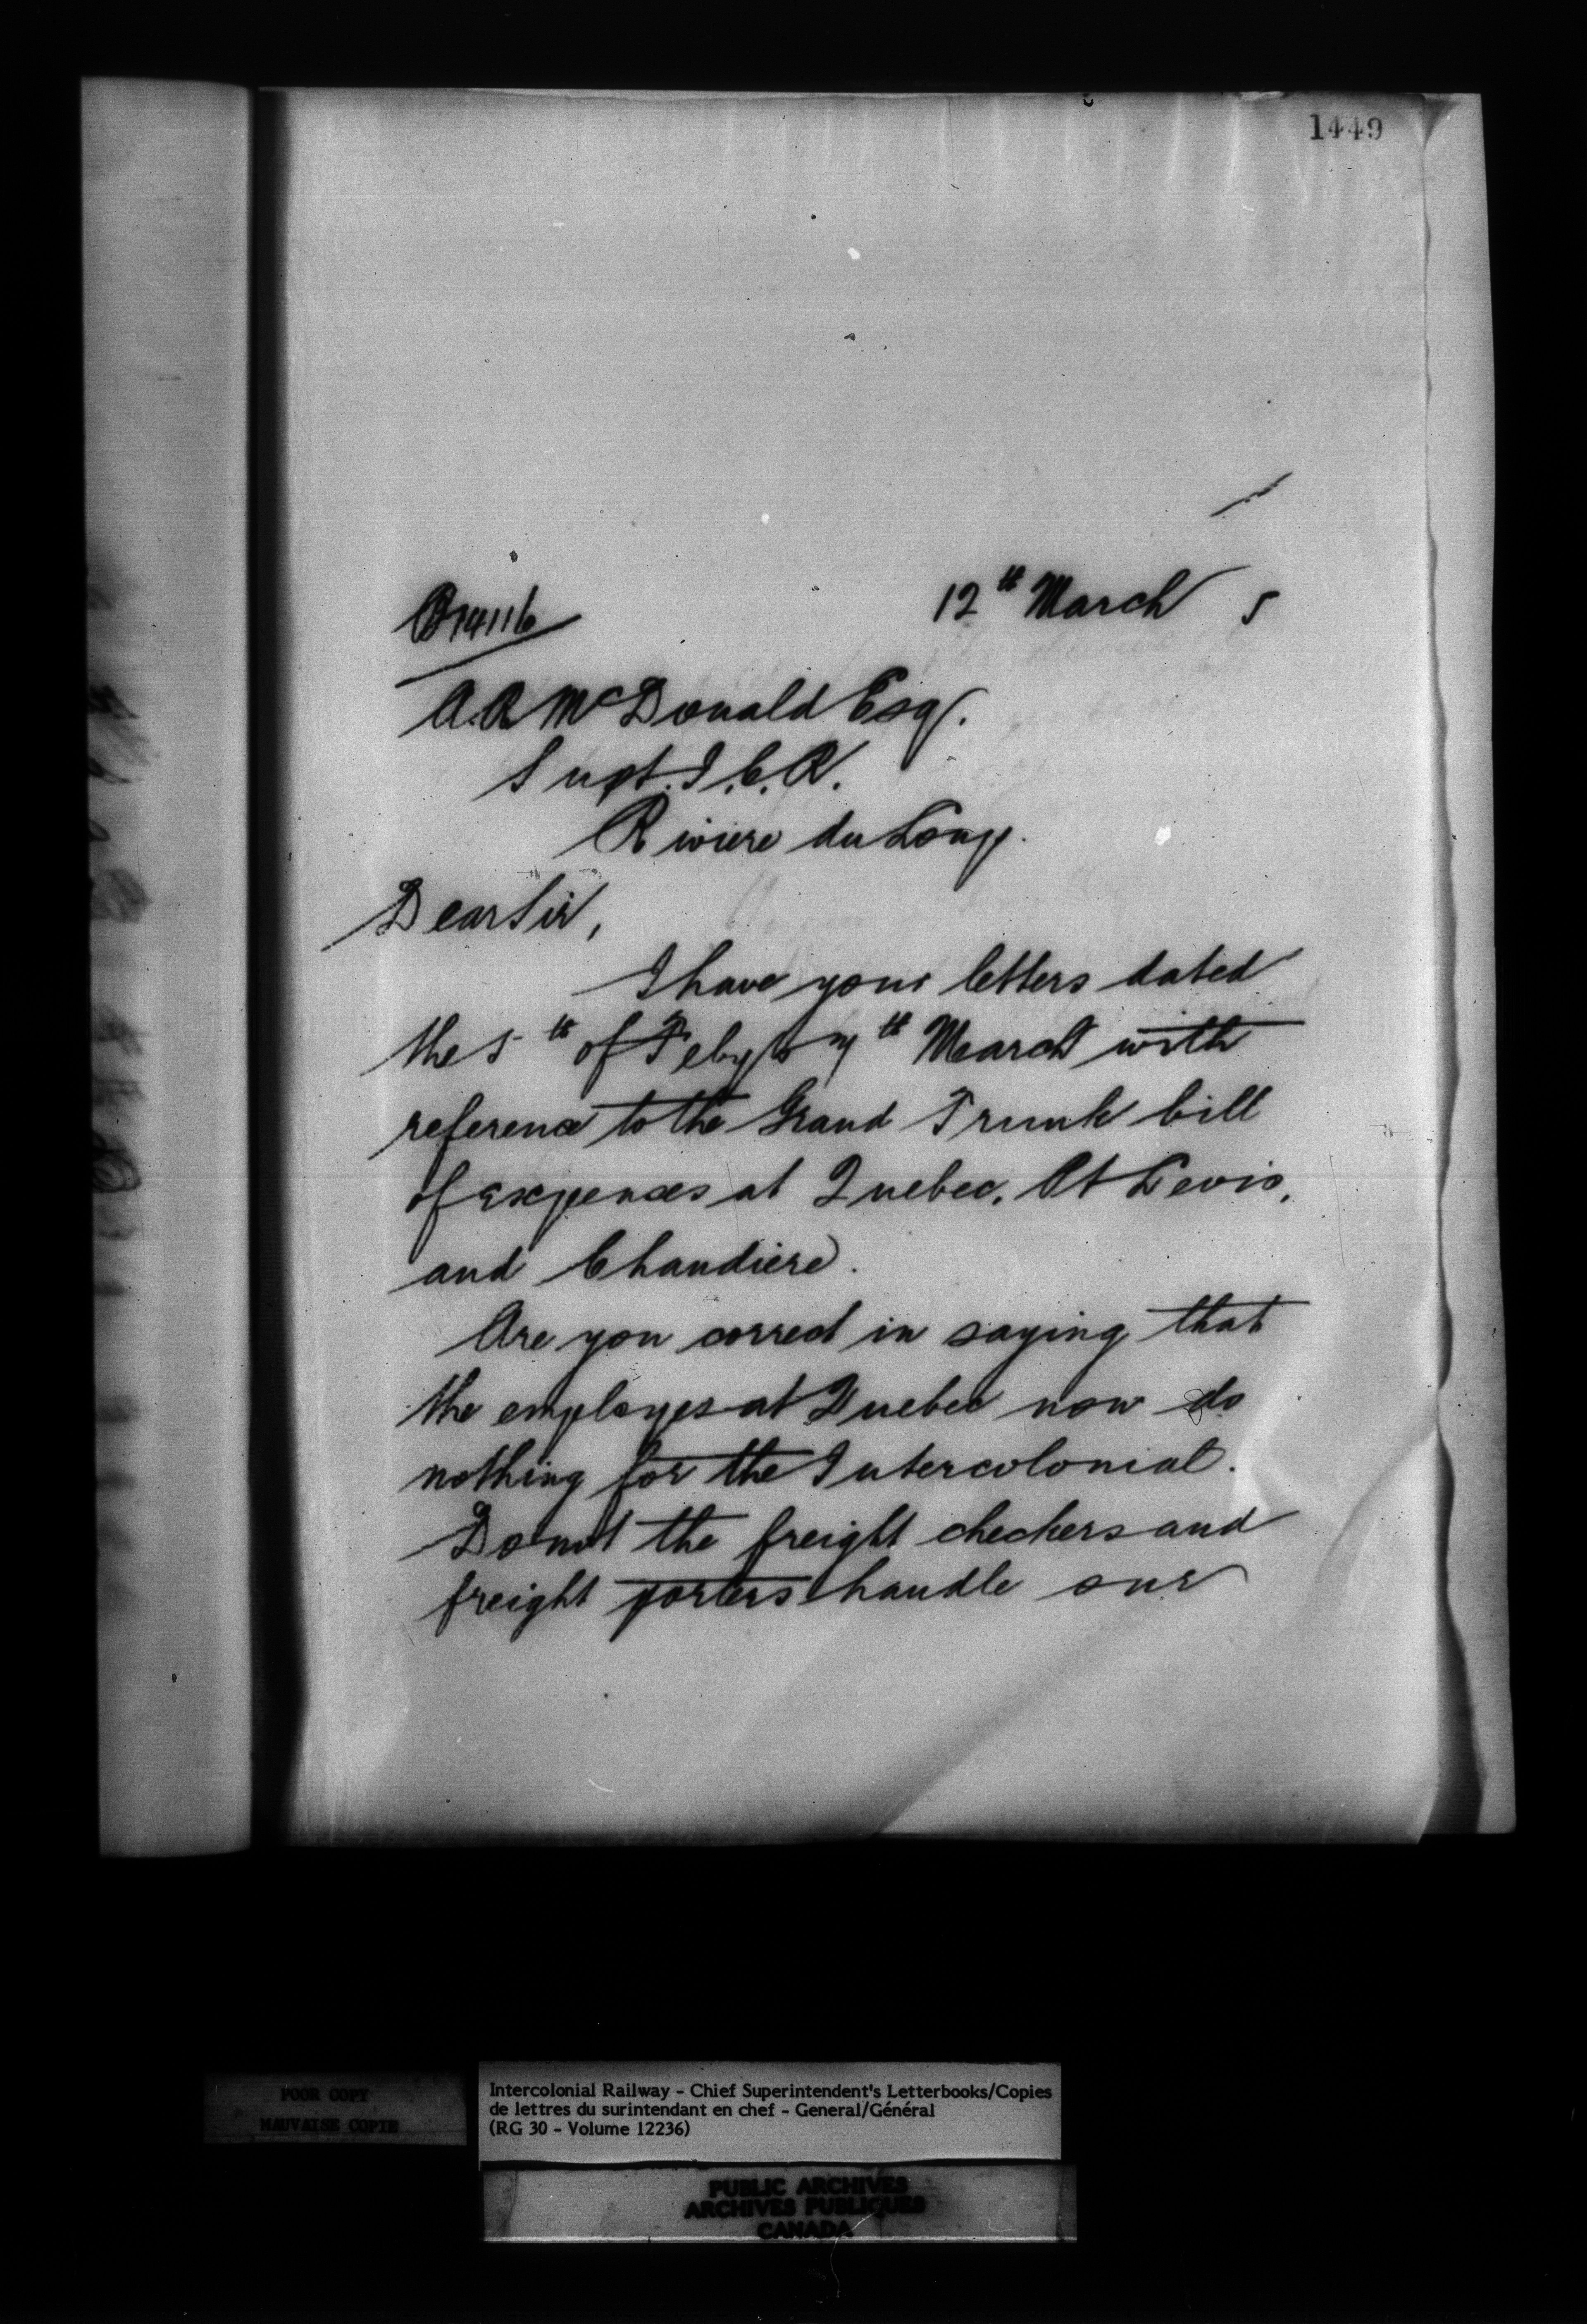 1449
12th March 5
A.R. McDonald Esq.
Supt. I.C.R.
Riviere du Loup.
Dear Sir,
I have your letters dated
the 5th of Feby & 7th March with
reference to the Grand Trunk bill
of expences at Quebec, Pt Levis,
and Chaudiere.
Are you correct in saying that
the employes at Quebec now do
nothing for the Intercolonial.
Do not the freight checkers and
freight porters handle our
POOR COPY
MAUVAISE COPIE
Intercolonial Railway - Chief Superintendent's Letterbooks/Copies
de lettres du surintendant en chef - General/Général
(RG 30 - Volume 12236)
PUBLIC ARCHIVES
ARCHIVES PUBLIQUES
CANADA